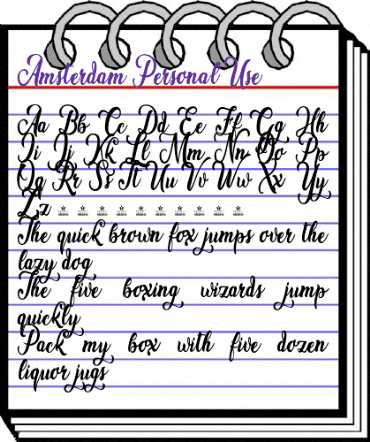 Amsterdam Personal Use
Aa Bb Cc Dd Ee Ff Gg Hh
Ii Jj Kk Ll Mm Nn Oo Pp
Qq Rr Ss Tt Uu Vv Ww Xx Yy
Zz
The quick brown fox jumps over the
lazy dog
The five boxing wizards jump
quickly
Pack my box with five dozen
liquor jugs